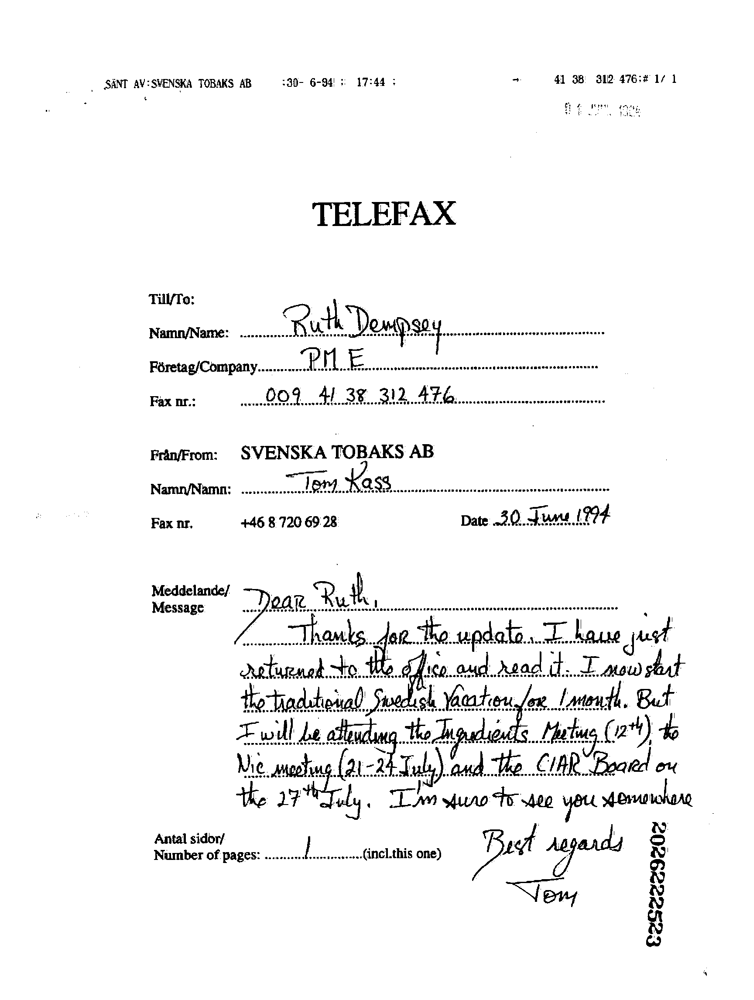 SÄNT AV:SVENSKA TOBAKS AB :30- 6-94 : 17:44 : → 41 38 312 476:# 1/ 1
TELEFAX
Till/To:
Namn/Name: Ruth Dempsey
Företag/Company PM E
Fax nr.: 009 41 38 312 476
Från/From: SVENSKA TOBAKS AB
Namn/Namn: Tom Kass
Fax nr. +46 8 720 69 28 Date 30 June 1994
Meddelande/ Dear Ruth,
Message
Thanks for the update. I have just
returned to the office and read it. I now start
the traditional Swedish Vacation for 1 month. But
I will be attending the Ingredients Meeting (12th), the
Nic meeting (21-24 July) and the CIAR Board on
the 27th July. I'm sure to see you somewhere
Antal sidor/
Number of pages: 1 (incl.this one)
Best regards
Tom
2026222523